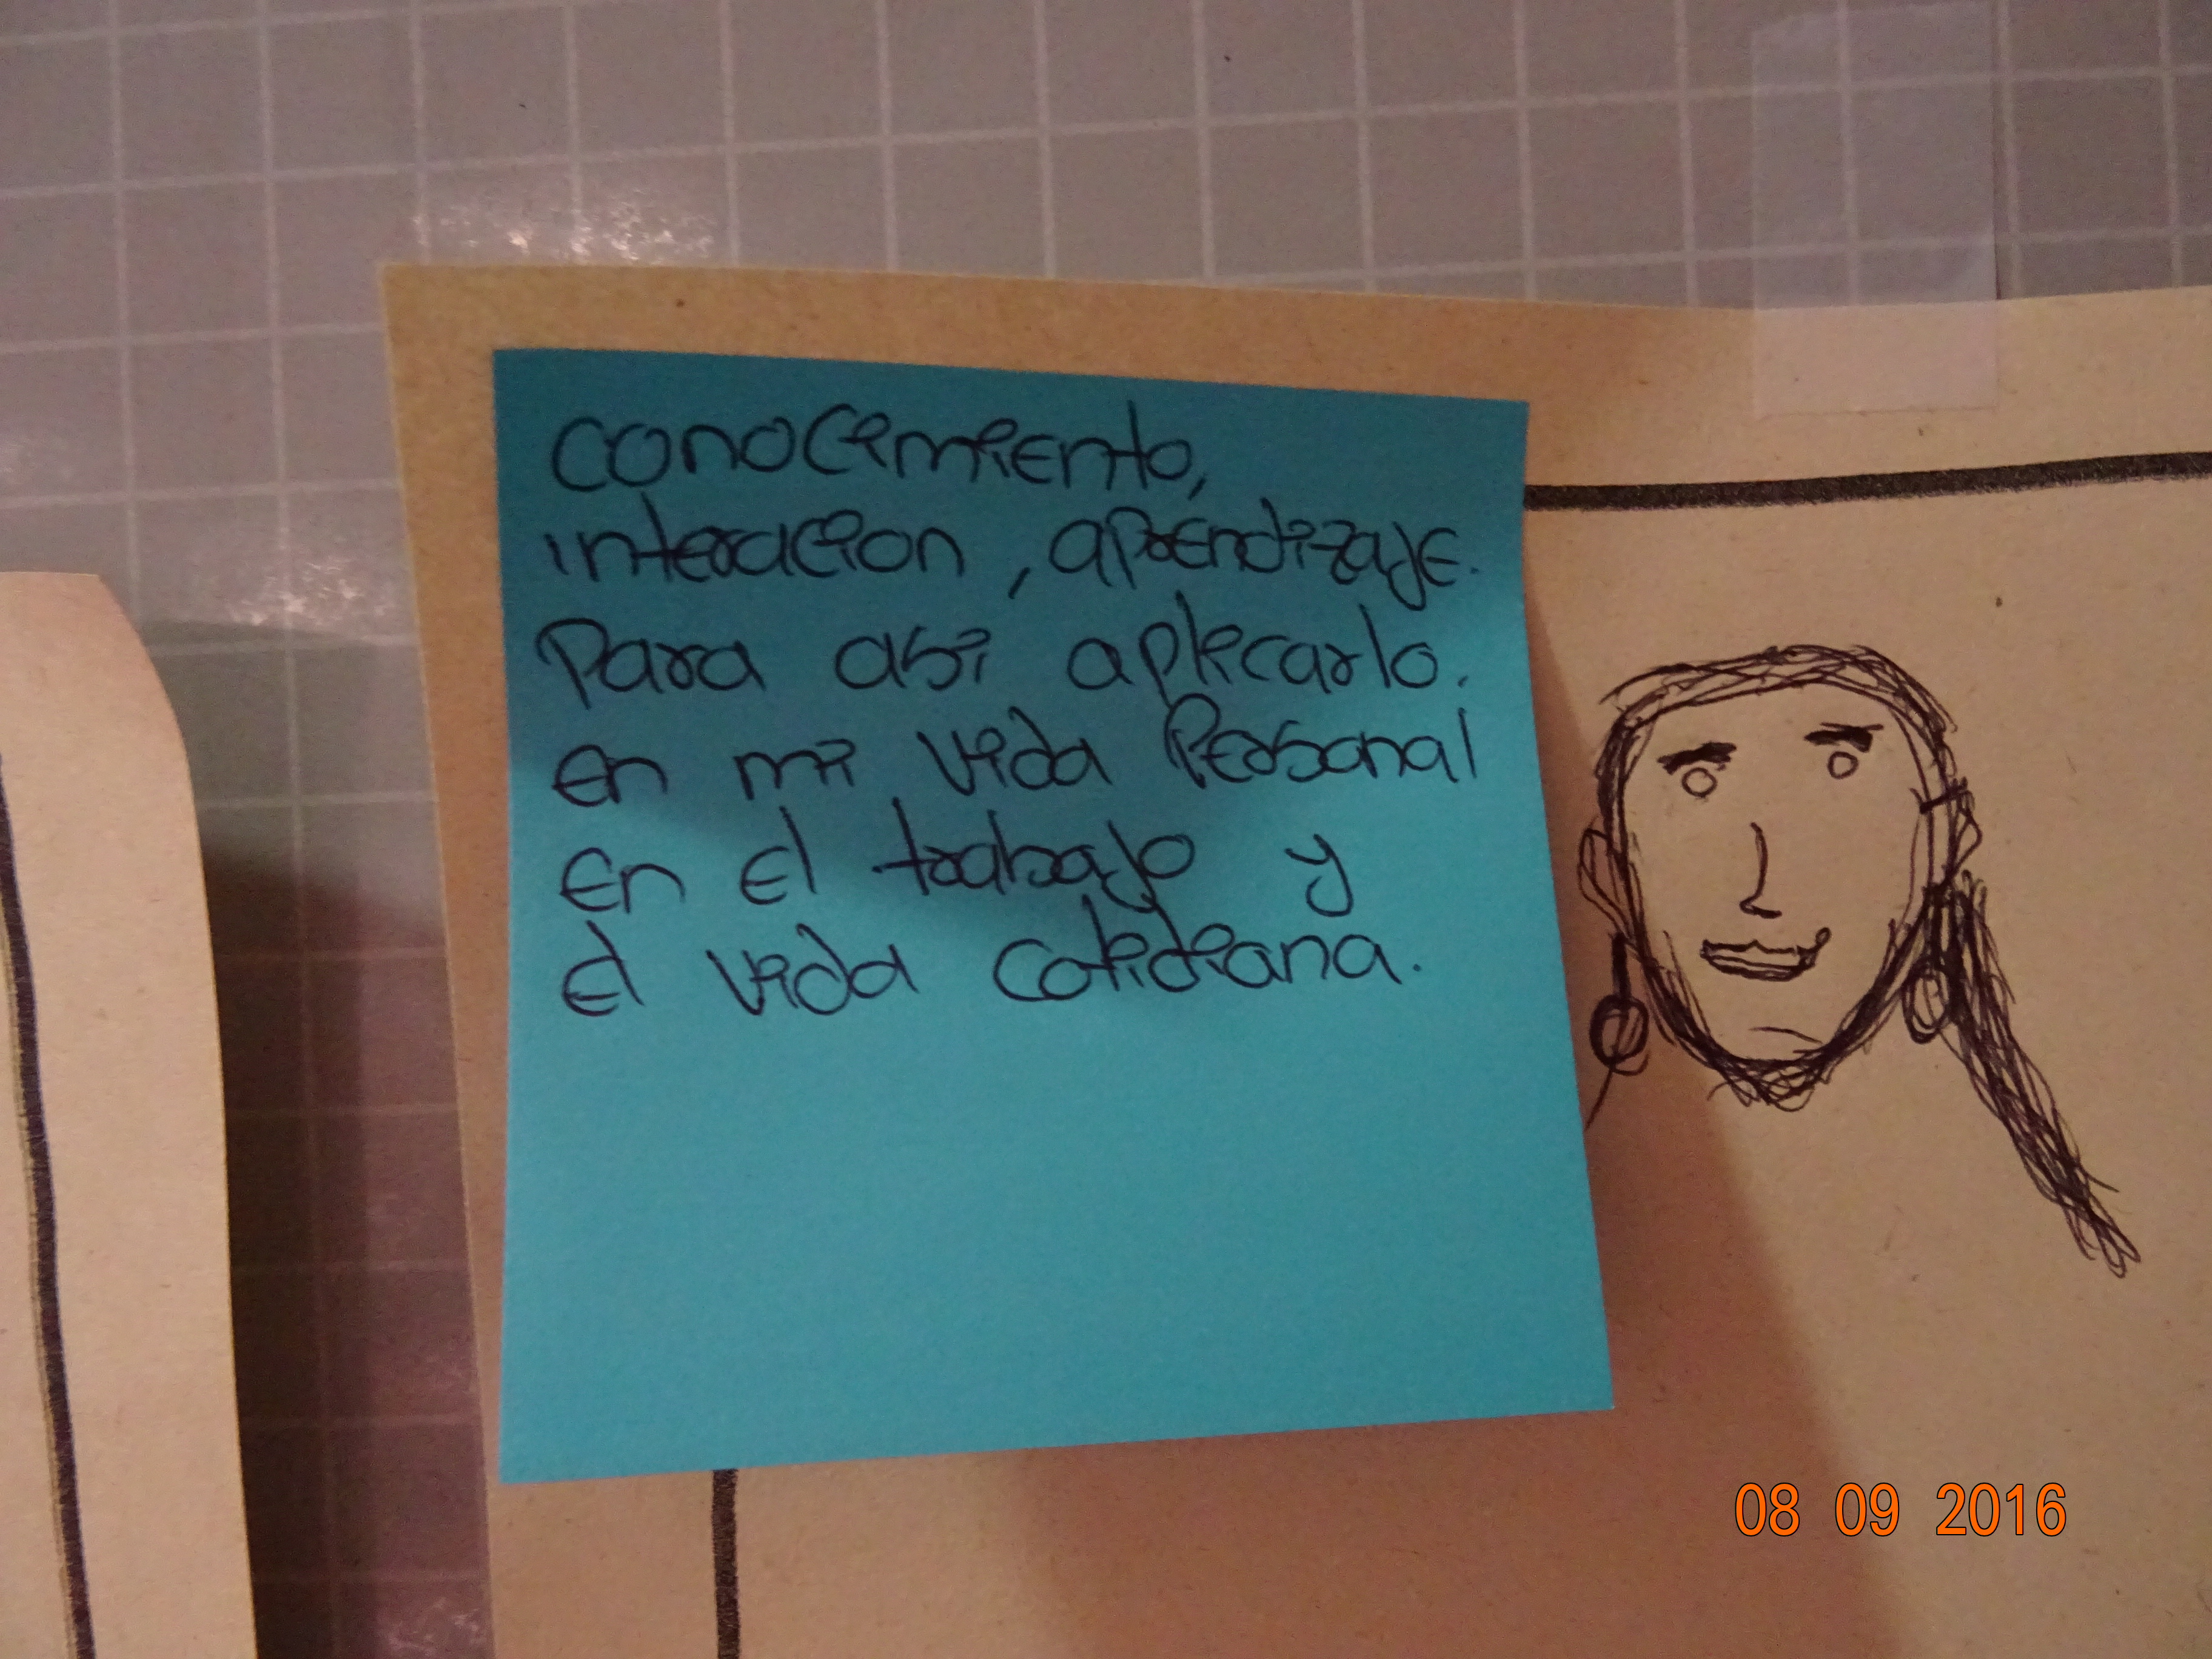 conocimiento,
interacion, aprendizaje.
Para asi aplicarlo.
en mi vida Personal
en el trabajo y
el vida cotidiana.
08 09 2016